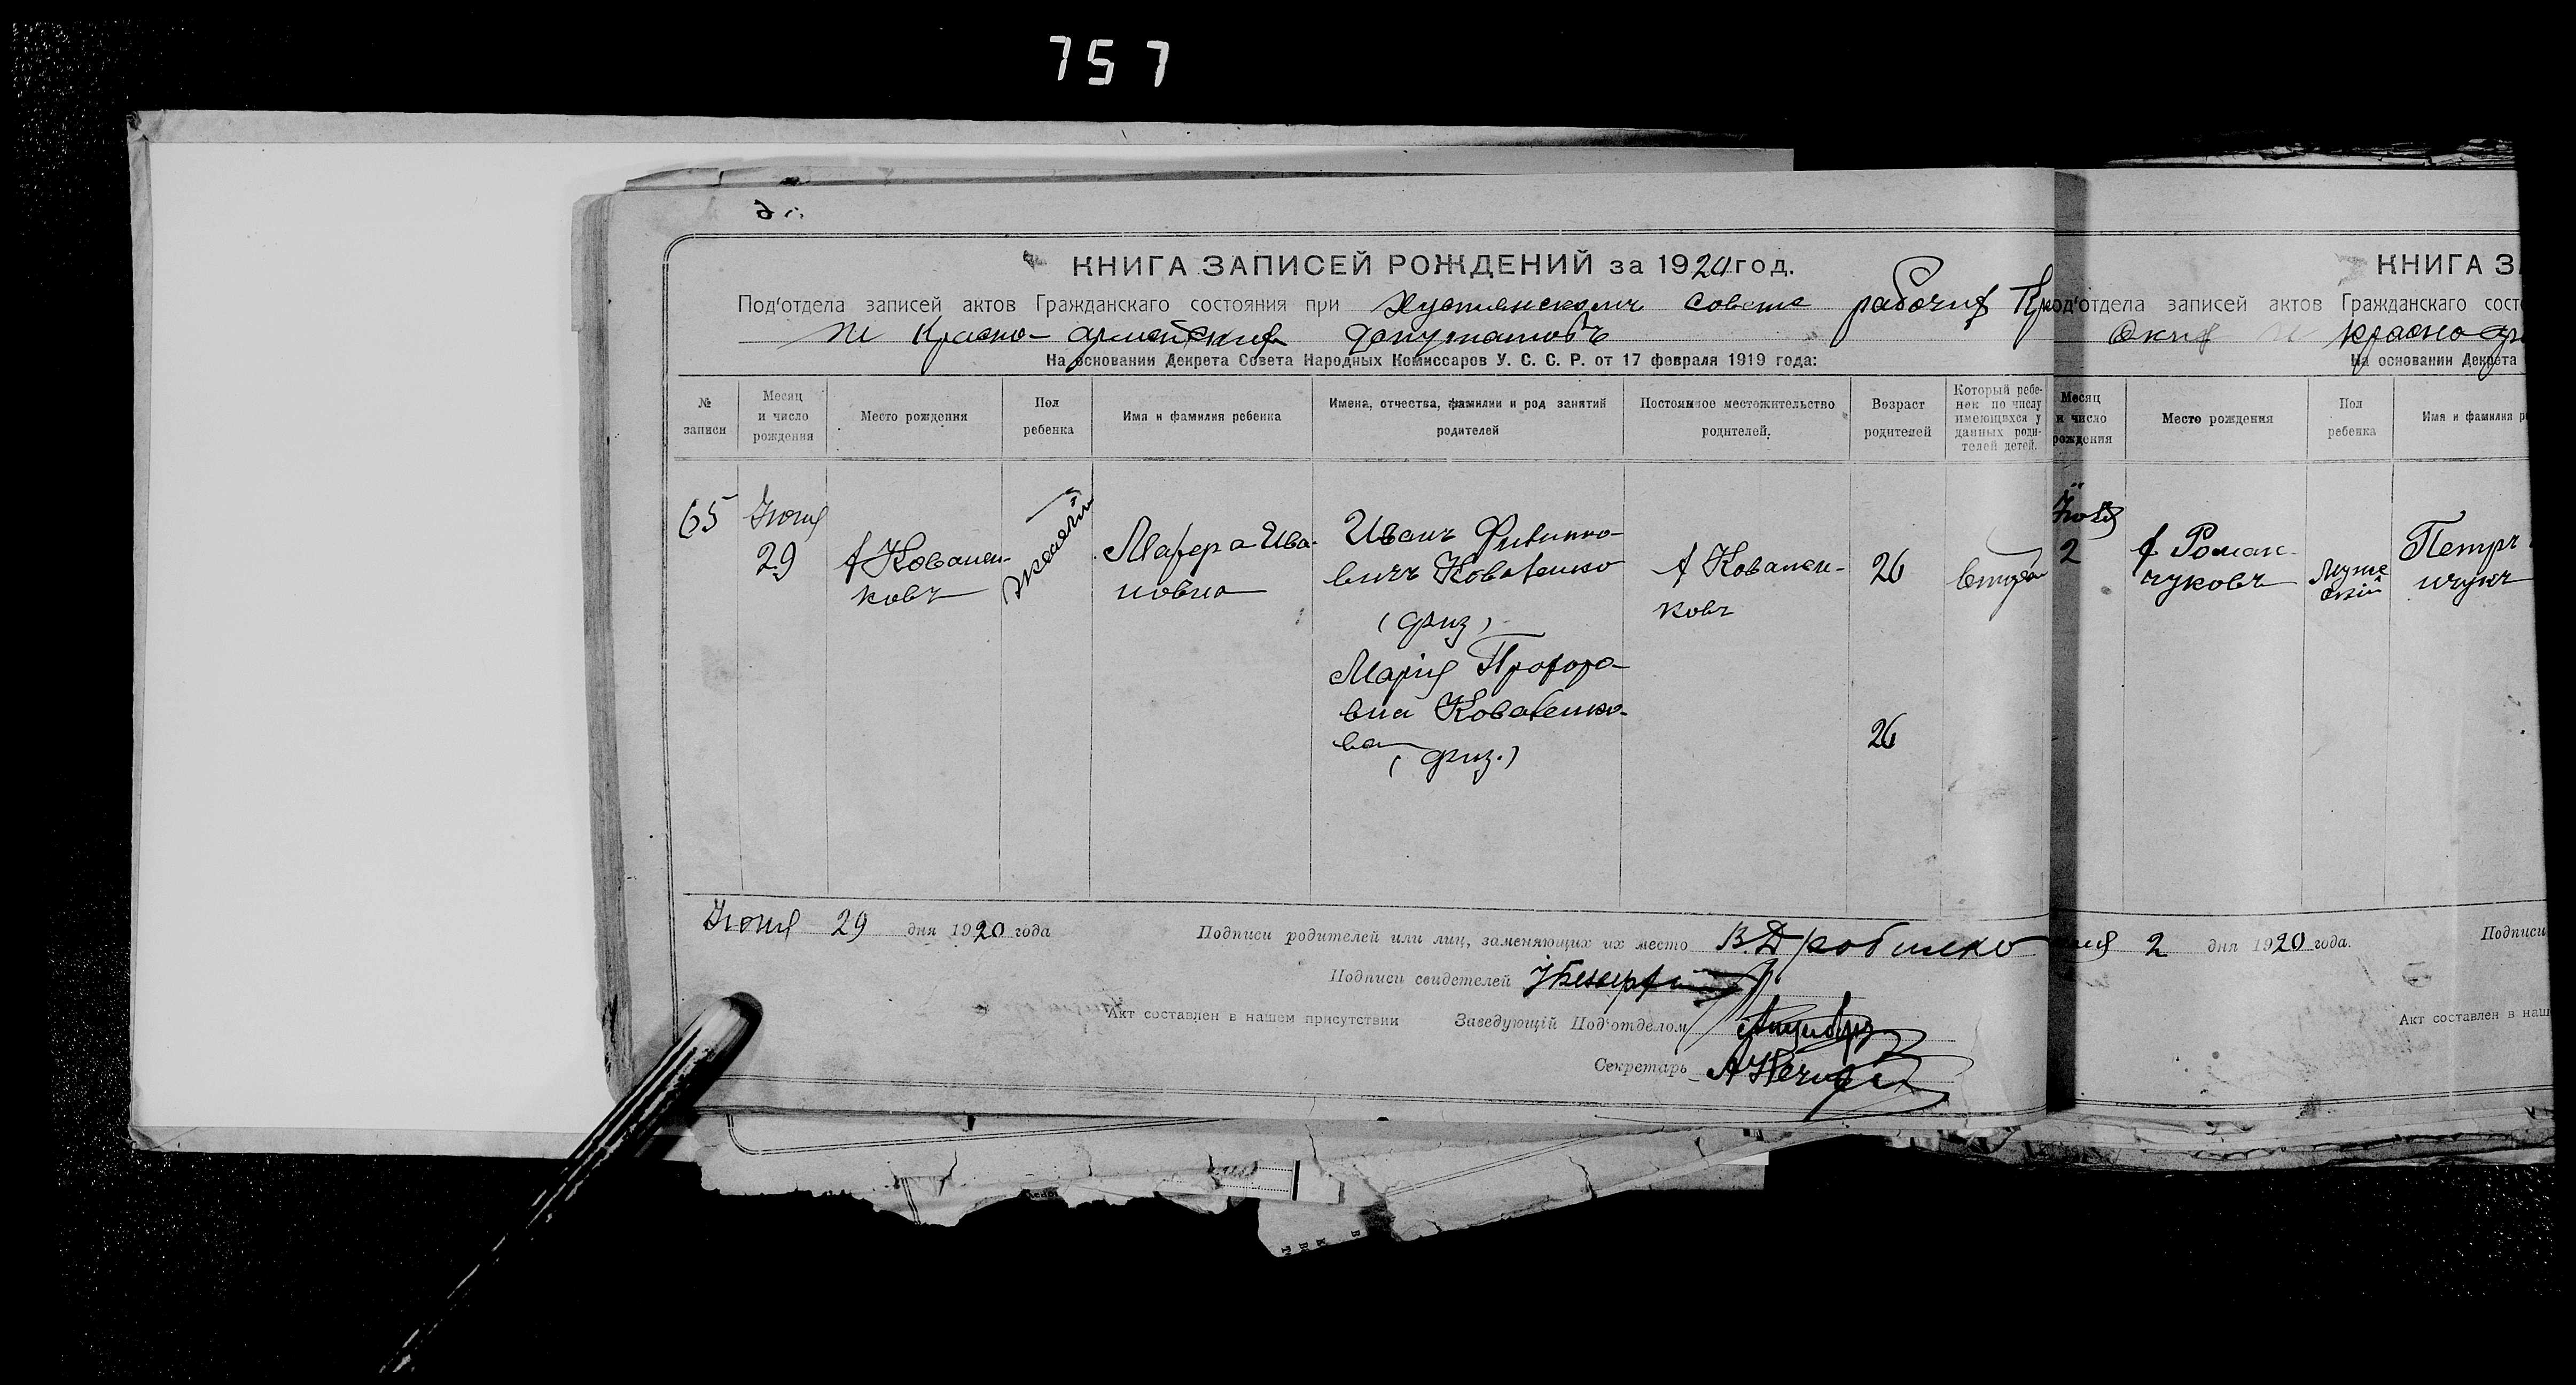 757
КНИГА ЗАПИСЕЙ РОЖДЕНИЙ за 1920 год.
Под'отдела записей актов Гражданскаго состояния при Хустянскомъ совете рабочих
и Красно-армейских депутатовъ
На основании Декрета Совета Народных Комиссаров У. С. С. Р. от 17 февраля 1919 года:
№ записи
Месяц и число рождения
Место рождения
Пол ребенка
Имя и фамилия ребенка
Имена, отчества, фамилии и род занятий родителей
Постоянное местожительство родителей.
Возраст родителей
Который ребе-
нок по числу
имеющихся у
данных роди-
телей детей.
65
Июня
29
х Ковален-
ковъ
женскій
Иванъ Филиппо-
вичъ Коваленко
(физ)
Марія Прохоро-
вна Коваленко-
ва
(физ.)
х Ковален-
ковъ
26
26
Июня 29 дня 1920 года
Подписи родителей или лиц, заменяющих их место
Подписи свидетелей
Акт составлен в нашем присутствии Заведующій Под'отделом
Секретарь
КНИГА З
од'отдела записей актов Гражданскаго сост
красно-ар
На основании Декрета
Месяц
и число
рождения
Место рождения
Пол
ребенка
Имя и фамилия р
2
х Роман-
чуковъ
Муже
скій
Петръ
2 дня 1920 года.
Подписи
Акт составлен в наш